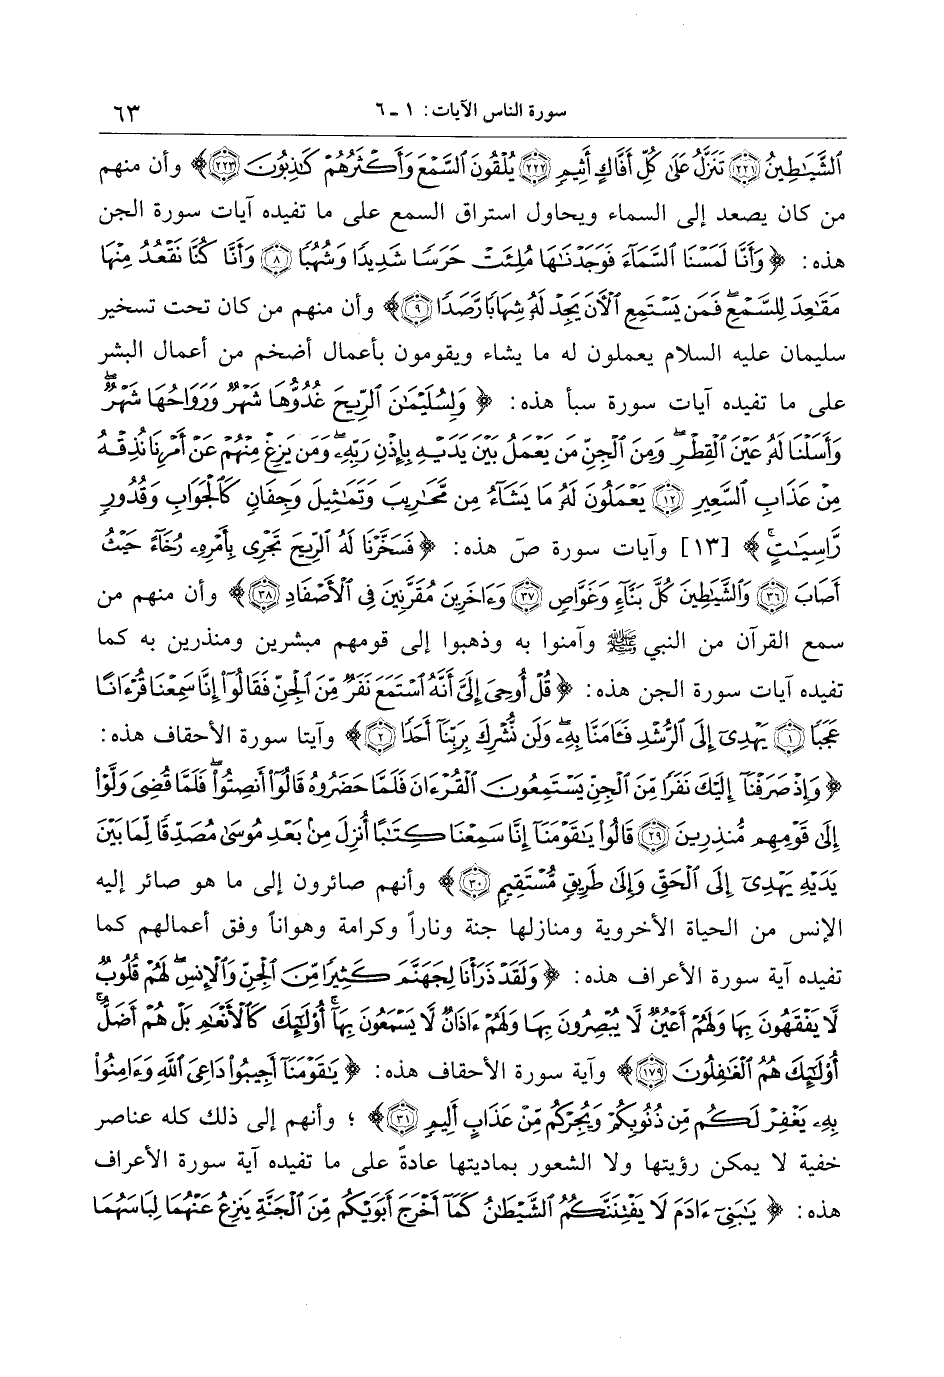 سورة الناس الآيات: ١ ـ ٦
٦٣
ٱلشَّيَٰطِينُ ﴿٢٢١﴾ تَنَزَّلُ عَلَىٰ كُلِّ أَفَّاكٍ أَثِيمٖ ﴿٢٢٢﴾ يُلۡقُونَ ٱلسَّمۡعَ وَأَكۡثَرُهُمۡ كَٰذِبُونَ ﴿٢٢٣﴾﴾ وأن منهم
من كان يصعد إلى السماء ويحاول استراق السمع على ما تفيده آيات سورة الجن
هذه: ﴿وَأَنَّا لَمَسۡنَا ٱلسَّمَآءَ فَوَجَدۡنَٰهَا مُلِئَتۡ حَرَسٗا شَدِيدٗا وَشُهُبٗا ﴿٨﴾ وَأَنَّا كُنَّا نَقۡعُدُ مِنۡهَا
مَقَٰعِدَ لِلسَّمۡعِۖ فَمَن يَسۡتَمِعِ ٱلۡأٓنَ يَجِدۡ لَهُۥ شِهَابٗا رَّصَدٗا ﴿٩﴾﴾ وأن منهم من كان تحت تسخير
سليمان عليه السلام يعملون له ما يشاء ويقومون بأعمال أضخم من أعمال البشر
على ما تفيده آيات سورة سبأ هذه: ﴿وَلِسُلَيۡمَٰنَ ٱلرِّيحَ غُدُوُّهَا شَهۡرٞ وَرَوَاحُهَا شَهۡرٞۖ
وَأَسَلۡنَا لَهُۥ عَيۡنَ ٱلۡقِطۡرِۖ وَمِنَ ٱلۡجِنِّ مَن يَعۡمَلُ بَيۡنَ يَدَيۡهِ بِإِذۡنِ رَبِّهِۦۖ وَمَن يَزِغۡ مِنۡهُمۡ عَنۡ أَمۡرِنَا نُذِقۡهُ
مِنۡ عَذَابِ ٱلسَّعِيرِ ﴿١٢﴾ يَعۡمَلُونَ لَهُۥ مَا يَشَآءُ مِن مَّحَٰرِيبَ وَتَمَٰثِيلَ وَجِفَانٖ كَٱلۡجَوَابِ وَقُدُورٖ
رَّاسِيَٰتٍۚ﴾ [١٣] وآيات سورة صۤ هذه: ﴿فَسَخَّرۡنَا لَهُ ٱلرِّيحَ تَجۡرِي بِأَمۡرِهِۦ رُخَآءً حَيۡثُ
أَصَابَ ﴿٣٦﴾ وَٱلشَّيَٰطِينَ كُلَّ بَنَّآءٖ وَغَوَّاصٖ ﴿٣٧﴾ وَءَاخَرِينَ مُقَرَّنِينَ فِي ٱلۡأَصۡفَادِ ﴿٣٨﴾﴾ وأن منهم من
سمع القرآن من النبي ﷺ وآمنوا به وذهبوا إلى قومهم مبشرين ومنذرين به كما
تفيده آيات سورة الجن هذه: ﴿قُلۡ أُوحِيَ إِلَيَّ أَنَّهُ ٱسۡتَمَعَ نَفَرٞ مِّنَ ٱلۡجِنِّ فَقَالُوٓاْ إِنَّا سَمِعۡنَا قُرۡءَانًا
عَجَبٗا ﴿١﴾ يَهۡدِيٓ إِلَى ٱلرُّشۡدِ فَـَٔامَنَّا بِهِۦۖ وَلَن نُّشۡرِكَ بِرَبِّنَآ أَحَدٗا ﴿٢﴾﴾ وآيتا سورة الأحقاف هذه:
﴿وَإِذۡ صَرَفۡنَآ إِلَيۡكَ نَفَرٗا مِّنَ ٱلۡجِنِّ يَسۡتَمِعُونَ ٱلۡقُرۡءَانَ فَلَمَّا حَضَرُوهُ قَالُوٓاْ أَنصِتُواْۖ فَلَمَّا قُضِيَ وَلَّوۡاْ
إِلَىٰ قَوۡمِهِم مُّنذِرِينَ ﴿٢٩﴾ قَالُواْ يَٰقَوۡمَنَآ إِنَّا سَمِعۡنَا كِتَٰبًا أُنزِلَ مِنۢ بَعۡدِ مُوسَىٰ مُصَدِّقٗا لِّمَا بَيۡنَ
يَدَيۡهِ يَهۡدِيٓ إِلَى ٱلۡحَقِّ وَإِلَىٰ طَرِيقٖ مُّسۡتَقِيمٖ ﴿٣٠﴾﴾ وأنهم صائرون إلى ما هو صائر إليه
الإنس من الحياة الأخروية ومنازلها جنة وناراً وكرامة وهواناً وفق أعمالهم كما
تفيده آية سورة الأعراف هذه: ﴿وَلَقَدۡ ذَرَأۡنَا لِجَهَنَّمَ كَثِيرٗا مِّنَ ٱلۡجِنِّ وَٱلۡإِنسِۖ لَهُمۡ قُلُوبٞ
لَّا يَفۡقَهُونَ بِهَا وَلَهُمۡ أَعۡيُنٞ لَّا يُبۡصِرُونَ بِهَا وَلَهُمۡ ءَاذَانٞ لَّا يَسۡمَعُونَ بِهَآۚ أُوْلَٰٓئِكَ كَٱلۡأَنۡعَٰمِ بَلۡ هُمۡ أَضَلُّۚ
أُوْلَٰٓئِكَ هُمُ ٱلۡغَٰفِلُونَ ﴿١٧٩﴾﴾ وآية سورة الأحقاف هذه: ﴿يَٰقَوۡمَنَآ أَجِيبُواْ دَاعِيَ ٱللَّهِ وَءَامِنُواْ
بِهِۦ يَغۡفِرۡ لَكُم مِّن ذُنُوبِكُمۡ وَيُجِرۡكُم مِّنۡ عَذَابٍ أَلِيمٖ ﴿٣١﴾﴾؛ وأنهم إلى ذلك كله عناصر
خفية لا يمكن رؤيتها ولا الشعور بماديتها عادةً على ما تفيده آية سورة الأعراف
هذه: ﴿يَٰبَنِيٓ ءَادَمَ لَا يَفۡتِنَنَّكُمُ ٱلشَّيۡطَٰنُ كَمَآ أَخۡرَجَ أَبَوَيۡكُم مِّنَ ٱلۡجَنَّةِ يَنزِعُ عَنۡهُمَا لِبَاسَهُمَا